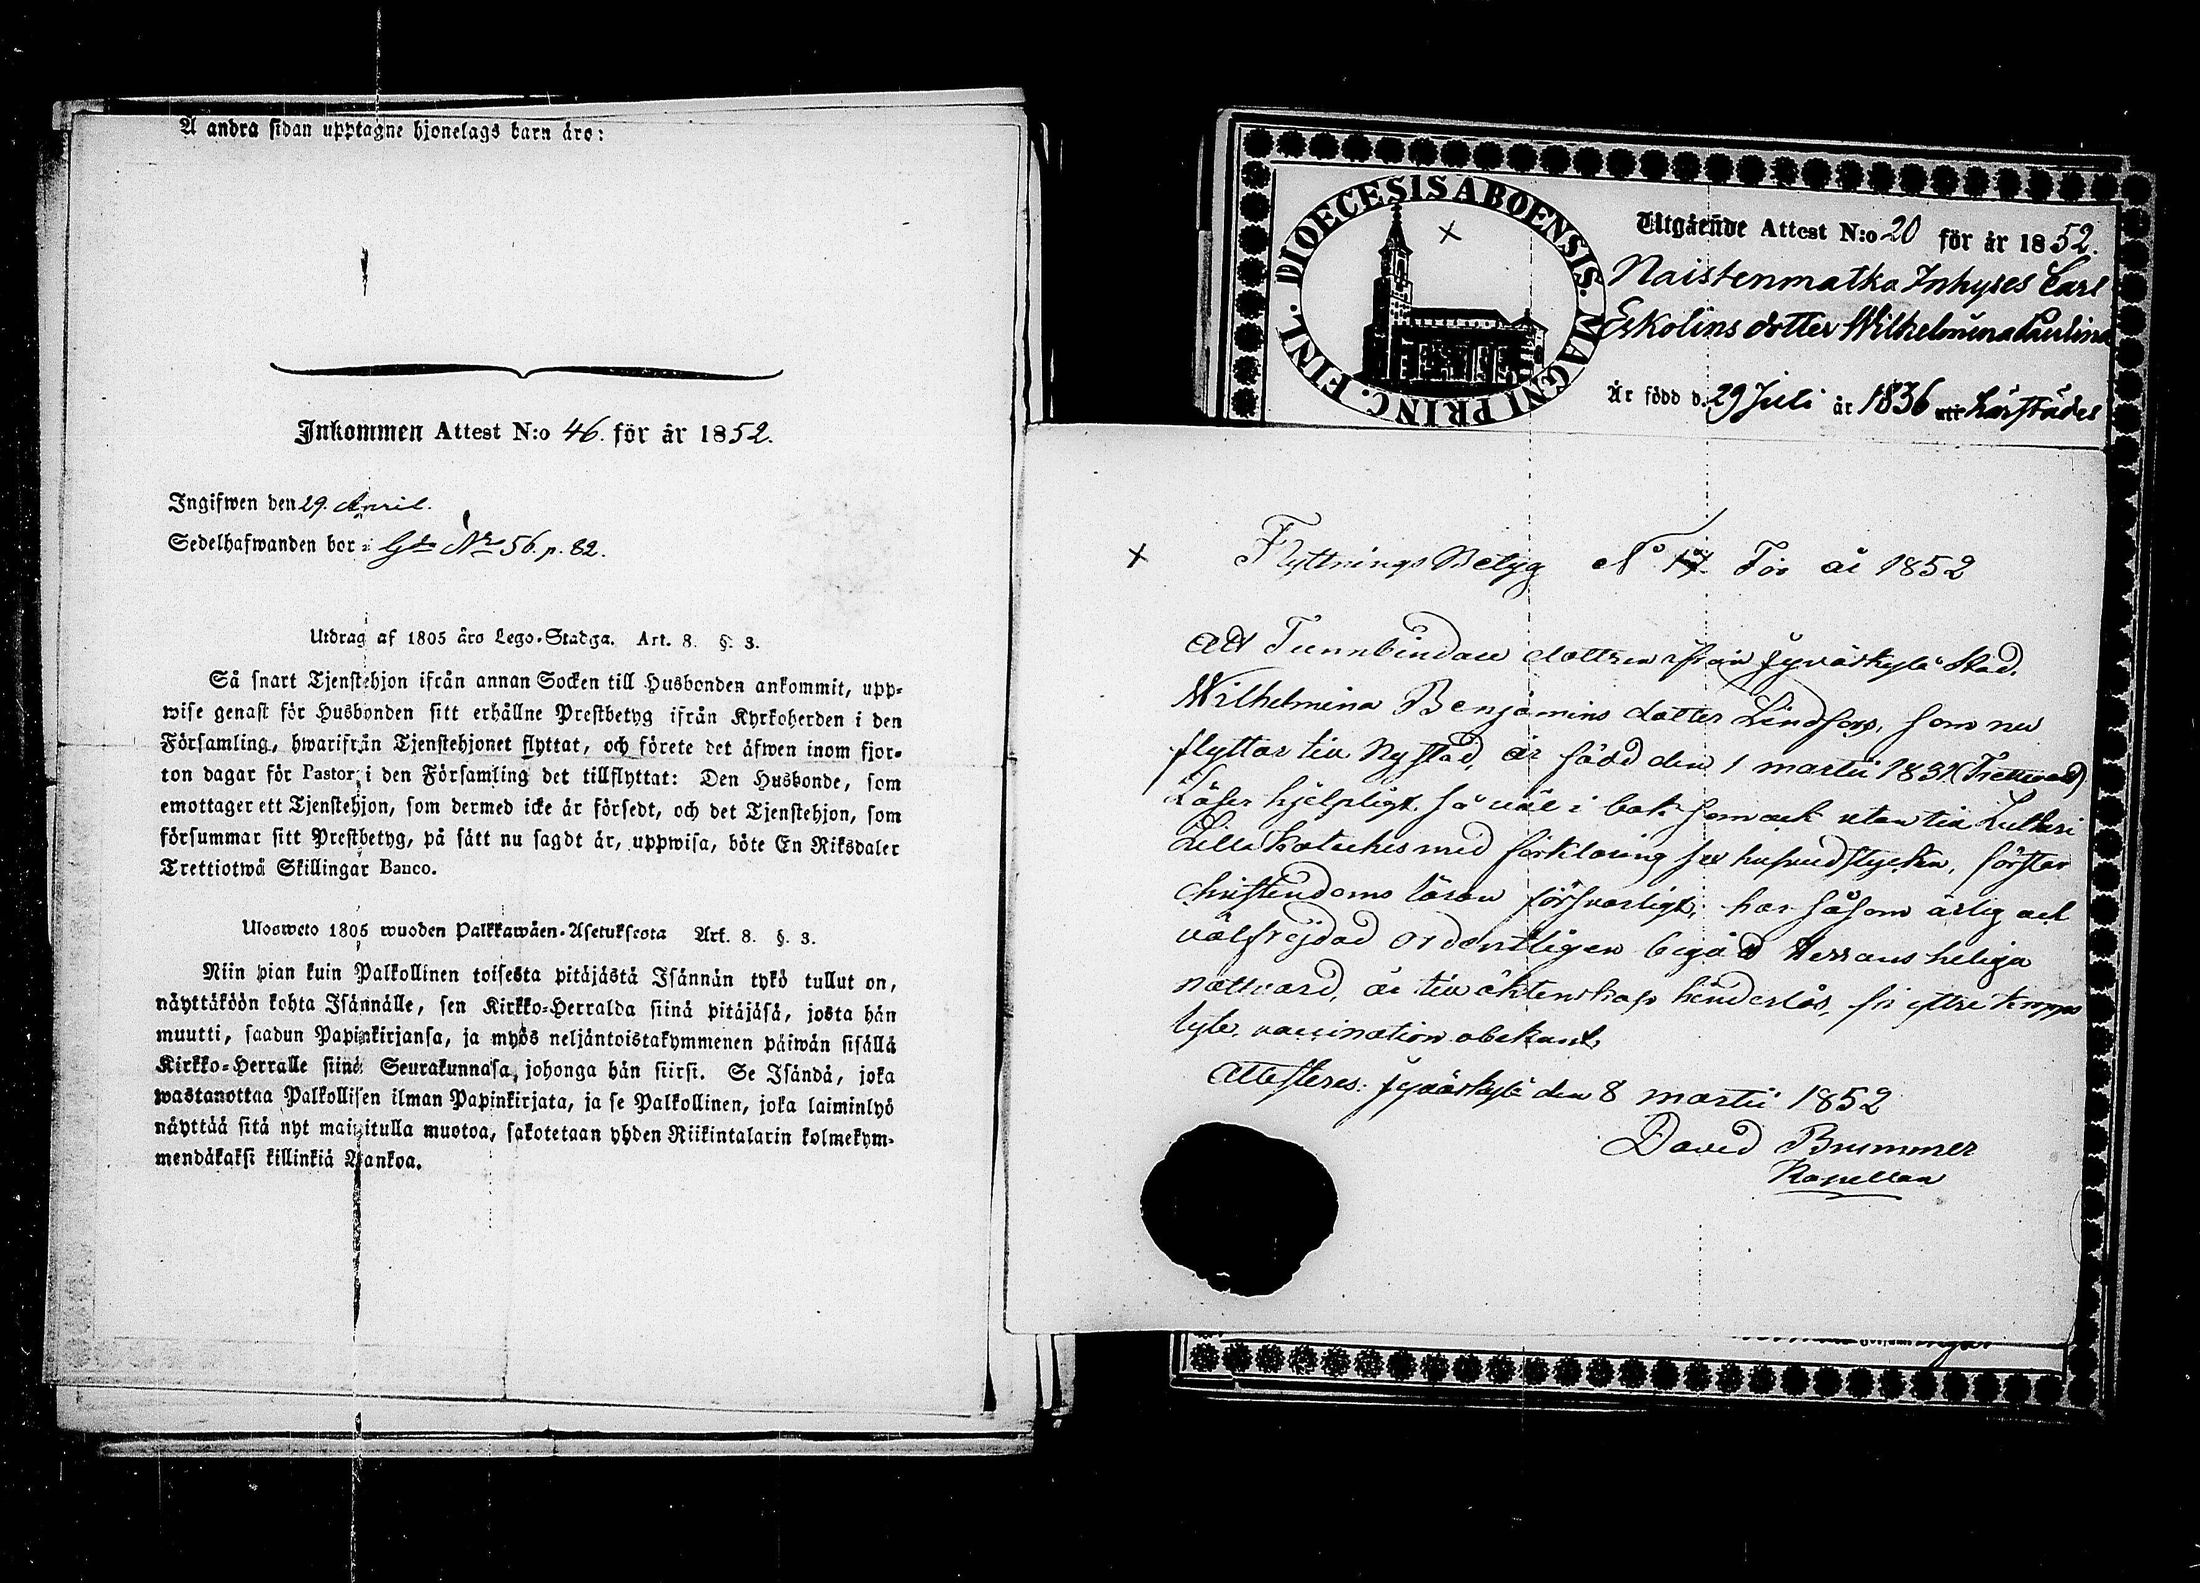 Å andra sidan upptagne hjonelags barn äro:
Inkommen Attest N:o 46. för år 1852.
Ingifwen den 29. April.
Sedelhafwanden bor: Gd. No 56. p. 82.
Utdrag af 1805 års Lego-Stadga. Art. 8. §. 3.
Så snart Tjenstehjon ifrån annan Socken till Husbonden ankommit, upp-
wise genast för Husbonden sitt erhållne Prestbetyg ifrån Kyrkoherden i den
Församling, hwarifrån Tjenstehjonet flyttat, och förete det äfwen inom fjor-
ton dagar för Pastor i den Församling det tillflyttat: Den Husbonde, som
emottager ett Tjenstehjon, som dermed icke är försedt, och det Tjenstehjon, som
försummar sitt Prestbetyg, på sätt nu sagdt är, uppwisa, böte En Riksdaler
Trettiotwå Skillingar Banco.
Uloosweto 1805 wuoden Palkkawäen-Asetuksesta Art. 8. §. 3.
Niin pian kuin Palkollinen toisesta pitäjästä Isännän tykö tullut on,
näyttäköön kohta Isännälle, sen Kirkko-Herralda siinä pitäjäsä, josta hän
muutti, saadun Papinkirjansa, ja myös neljäntoistakymmenen päiwän sisällä
Kirkko-Herralle siinä Seurakunnasa, johonga hän siirsi. Se Isändä, joka
wastanottaa Palkollisen ilman Papinkirjata, ja se Palkollinen, joka laiminlyö
näyttää sitä nyt mainitulla muotoa, sakotetaan yhden Riikintalarin kolmekym-
mendäkaksi killinkiä Bankoa.
DIOECESIS ABOENSIS. MAGNI PRINC. FINL.
Utgående Attest N:o 20 för år 1852.
Naistenmatka Inhyses Carl
Eskolins dotter Wilhelmina Paulina
Är född d. 29 Juli år 1836 uti härstädes
Flyttnings Betyg No 17. För år 1852
Att Tunnbindare dottren ifrån Jyväskylä Stad.
Wilhelmina Benjamins dotter Lindfors, som nu
flyttar till Nystad, är född den 1 martii 1831 (Trettioett)
Läser hjelpligt så väl i bok som ock utan till Lutheri
Lilla Kateches med förklaring sex hufvudstycken, förstår
christendoms läran försvarligt, har såsom ärlig och
välfrejdad ordentligen begådt Herrans heliga
nattvard, är till äktenskap hinderlös, fri yttre kropps
lyte, vaccination obekant,
Attesteras. Jyväskylä den 8 martii 1852
David Brummer
Kapellan